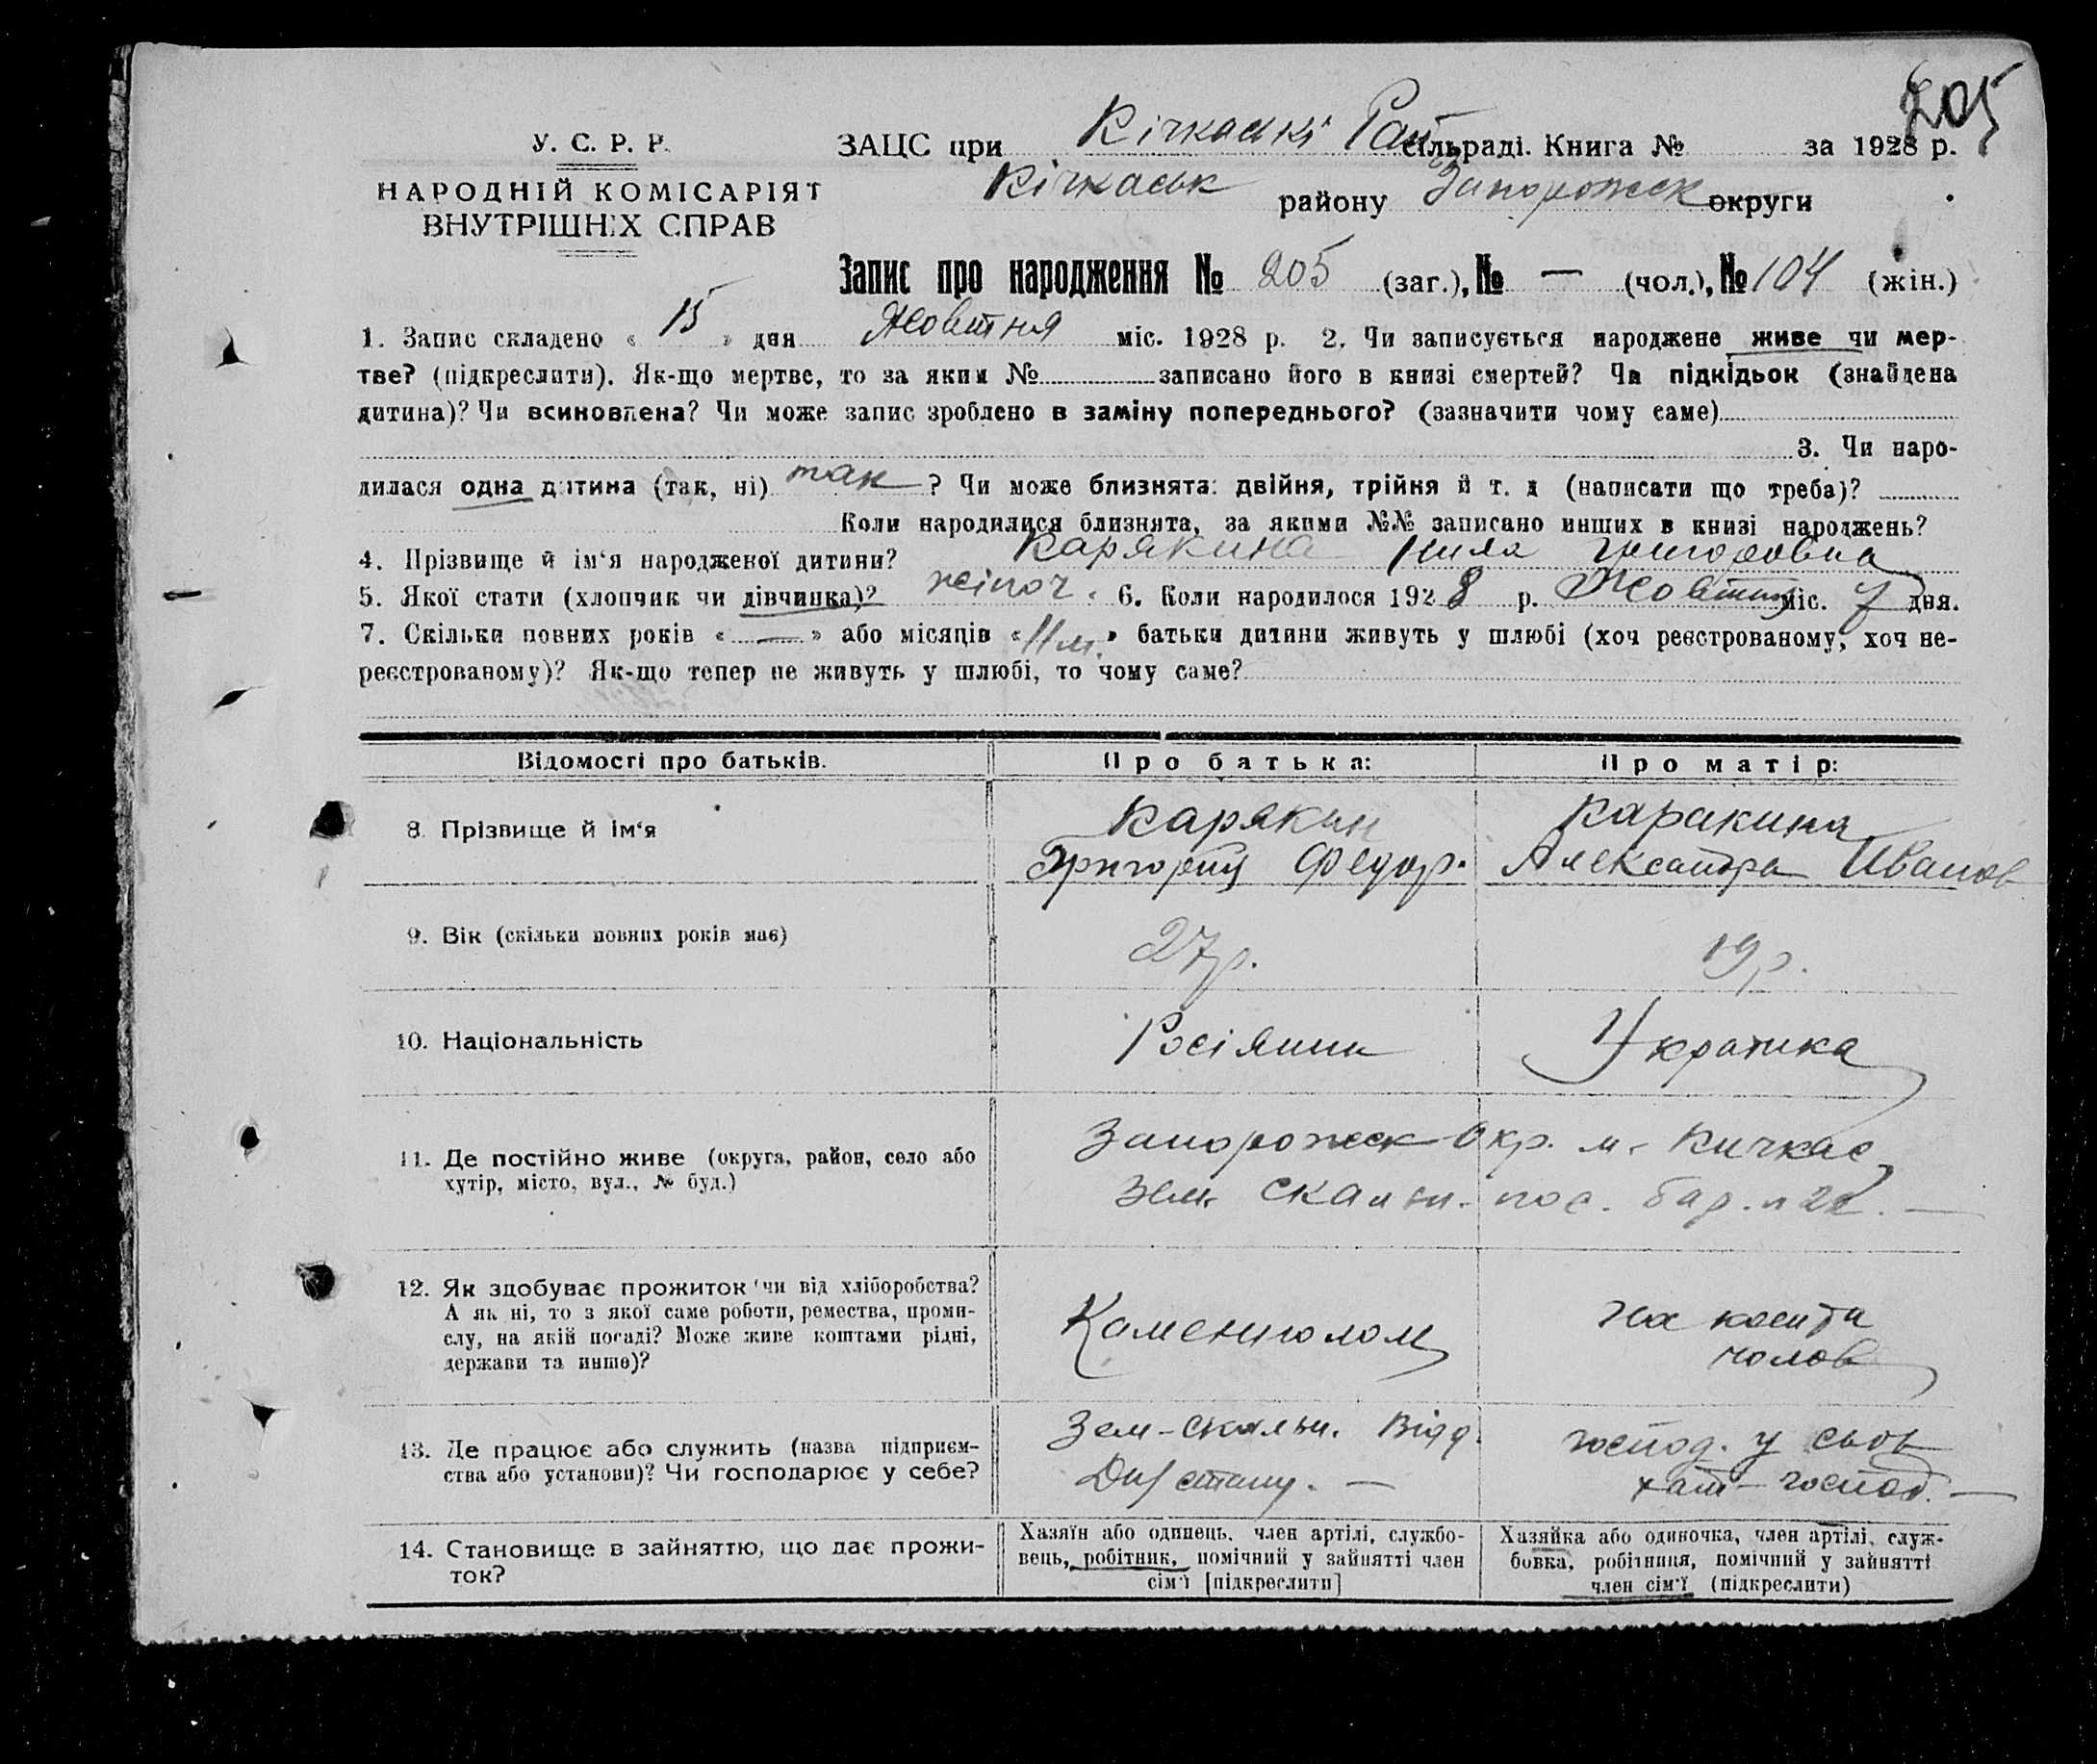 205
У. С. Р. Р.
НАРОДНІЙ КОМІСАРІЯТ
ВНУТРІШНІХ СПРАВ
ЗАЦС при Кічкаські Рай сільраді. Книга № за 1928 р.
Кічкаськ району Запорожск округи
Запис про народження № 205 (заг.), № — (чол.), № 104 (жін.)
1. Запис складено « 15 » дня Жовтня міс. 1928 р. 2. Чи записується народжене живе чи мер-
тве? (підкреслити). Як-що мертве, то за яким № записано його в книзі смертей? Чи підкідьок (знайдена
дитина)? Чи всиновлена? Чи може запис зроблено в заміну попереднього? (зазначити чому саме)
3. Чи наро-
дилася одна дитина (так, ні) так ? Чи може близнята: двійня, трійня й т. д (написати що треба)?
Коли народилися близнята, за якими №№ записано инших в книзі народжень?
4. Прізвище й ім‘я народженої дитини? Карякина Нила Григоровна
5. Якої стати (хлопчик чи дівчинка)? жіноч. 6. Коли народилося 1928 р. Жовтня міс. 7 дня.
7. Скільки повних років « — » або місяців « 11 м. » батьки дитини живуть у шлюбі (хоч реєстрованому, хоч не-
реєстрованому)? Як-що тепер не живуть у шлюбі, то чому саме?
Відомості про батьків. Про батька: Про матір:
8. Прізвище й ім‘я Карякин Каракина
Григорий Федор. Александра Иванов
9. Вік (скільки повних років має) 27 р. 19 р.
10. Національність Росіянин Украінка
11. Де постійно живе (округа, район, село або
хутір, місто, вул., № буд.)
Запорожск Окр. м. Кичкас
Зем. скальн. пос. бар.
12. Як здобуває прожиток чи від хліборобства?
А як ні, то з якої саме роботи, ремества, проми-
слу, на якій посаді? Може живе коштами рідні,
держави та инше)?
Каменщолом
на кошти
чолов
13. Де працює або служить (назва підприєм-
ства або установи)? Чи господарює у себе?
Зем-скальн. Відд.
Дн/стану. —
господ. у своі
хат— господ. —
14. Становище в зайняттю, що дає прожи-
ток?
Хазяїн або одинець, член артілі, службо-
вець, робітник, помічний у зайнятті член
сім‘ї [підкреслити]
Хазяйка або одиночка, член артілі, служ-
бовка, робітниця, помічний у зайнятті
член сім‘ї (підкреслити)